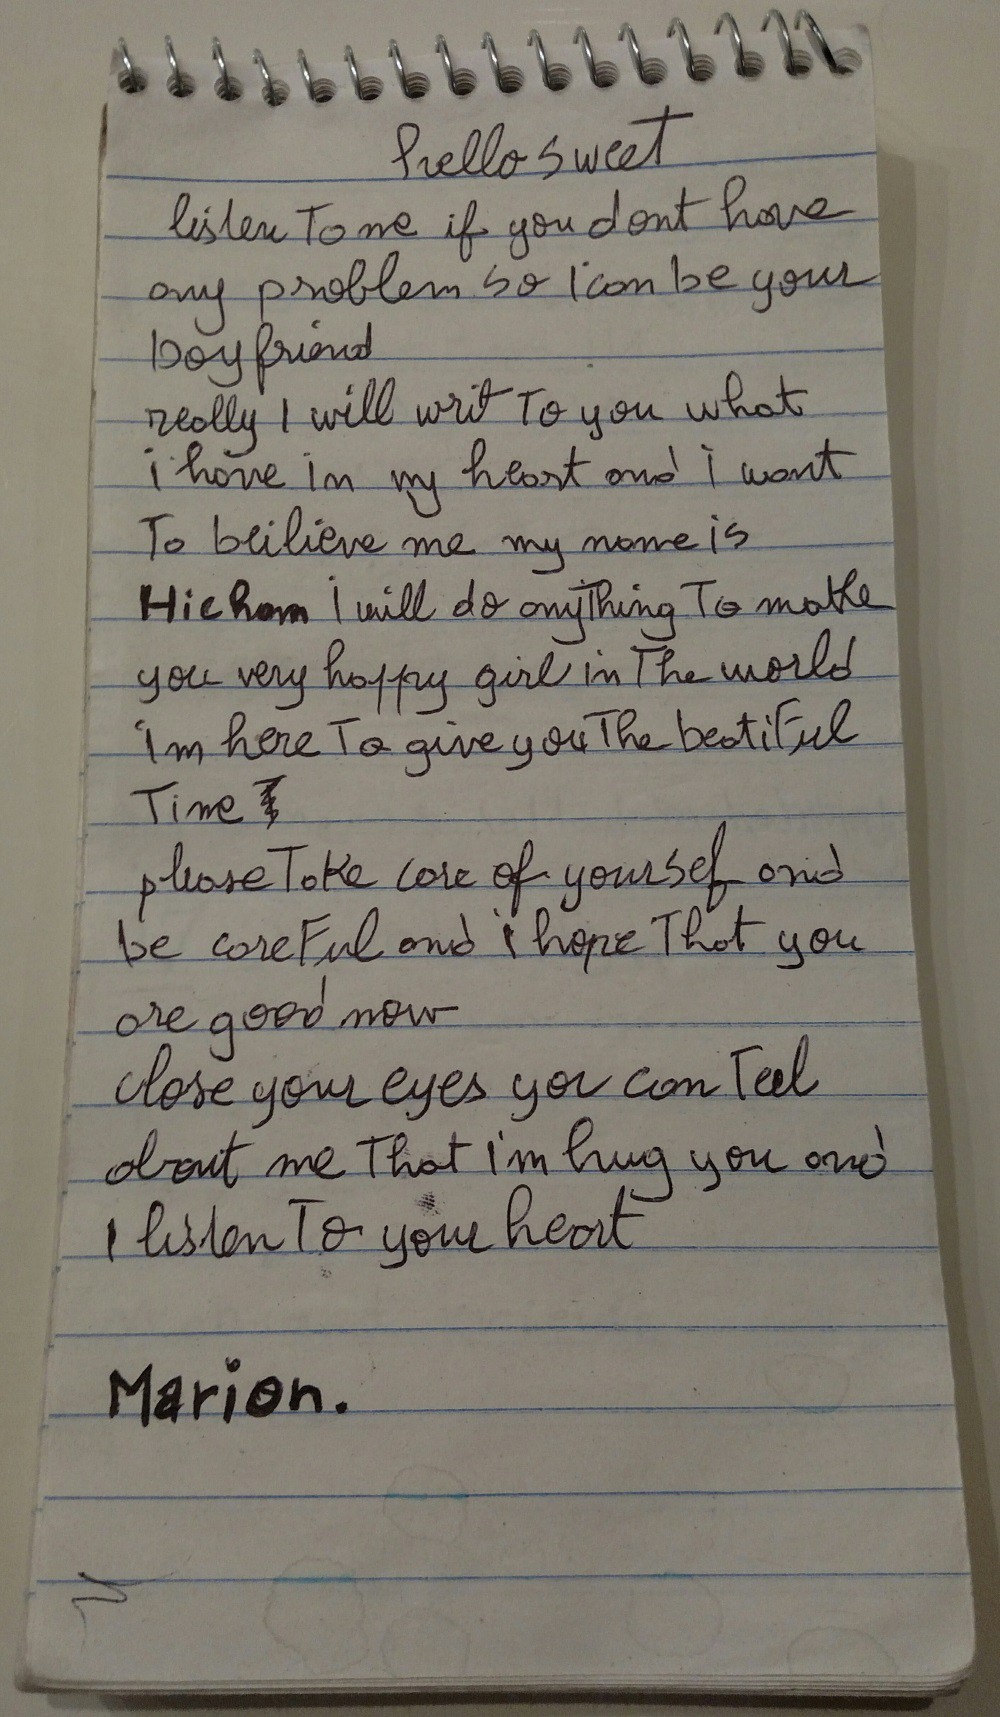 hello sweet
listen To me if you dont have
any problem so I can be your
boyfriend
really I will writ To you what
i have in my heart and i want
To beilieve me my name is
Hicham i will do anyThing To make
you very happy girl in The world
i'm here To give you The beatiFul
Time
please Take care of yoursef and
be careFul and i hope That you
are good now
close your eyes you can Teel
about me That i'm hug you and
I listen To your heart
Marion.